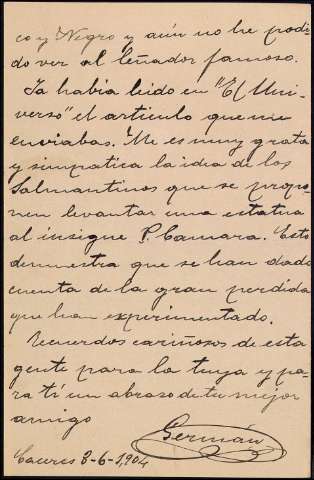 co y Negro y aún no he podi-
do ver al leñador famoso.
Ya habia leido en "El Uni-
verso" el articulo que me
enviabas. Me es muy grata
y simpatica la idea de los
Salmantinos que se propo-
nen levantar una estatua
al insigne P. Camara. Esto
demuestra que se han dado
cuenta de la gran perdida
que han experimentado.
Recuerdos cariñosos de esta
gente para la tuya y pa-
ra tí un abraso de tu mejor
amigo
Germán
Caceres 3-6-1,904